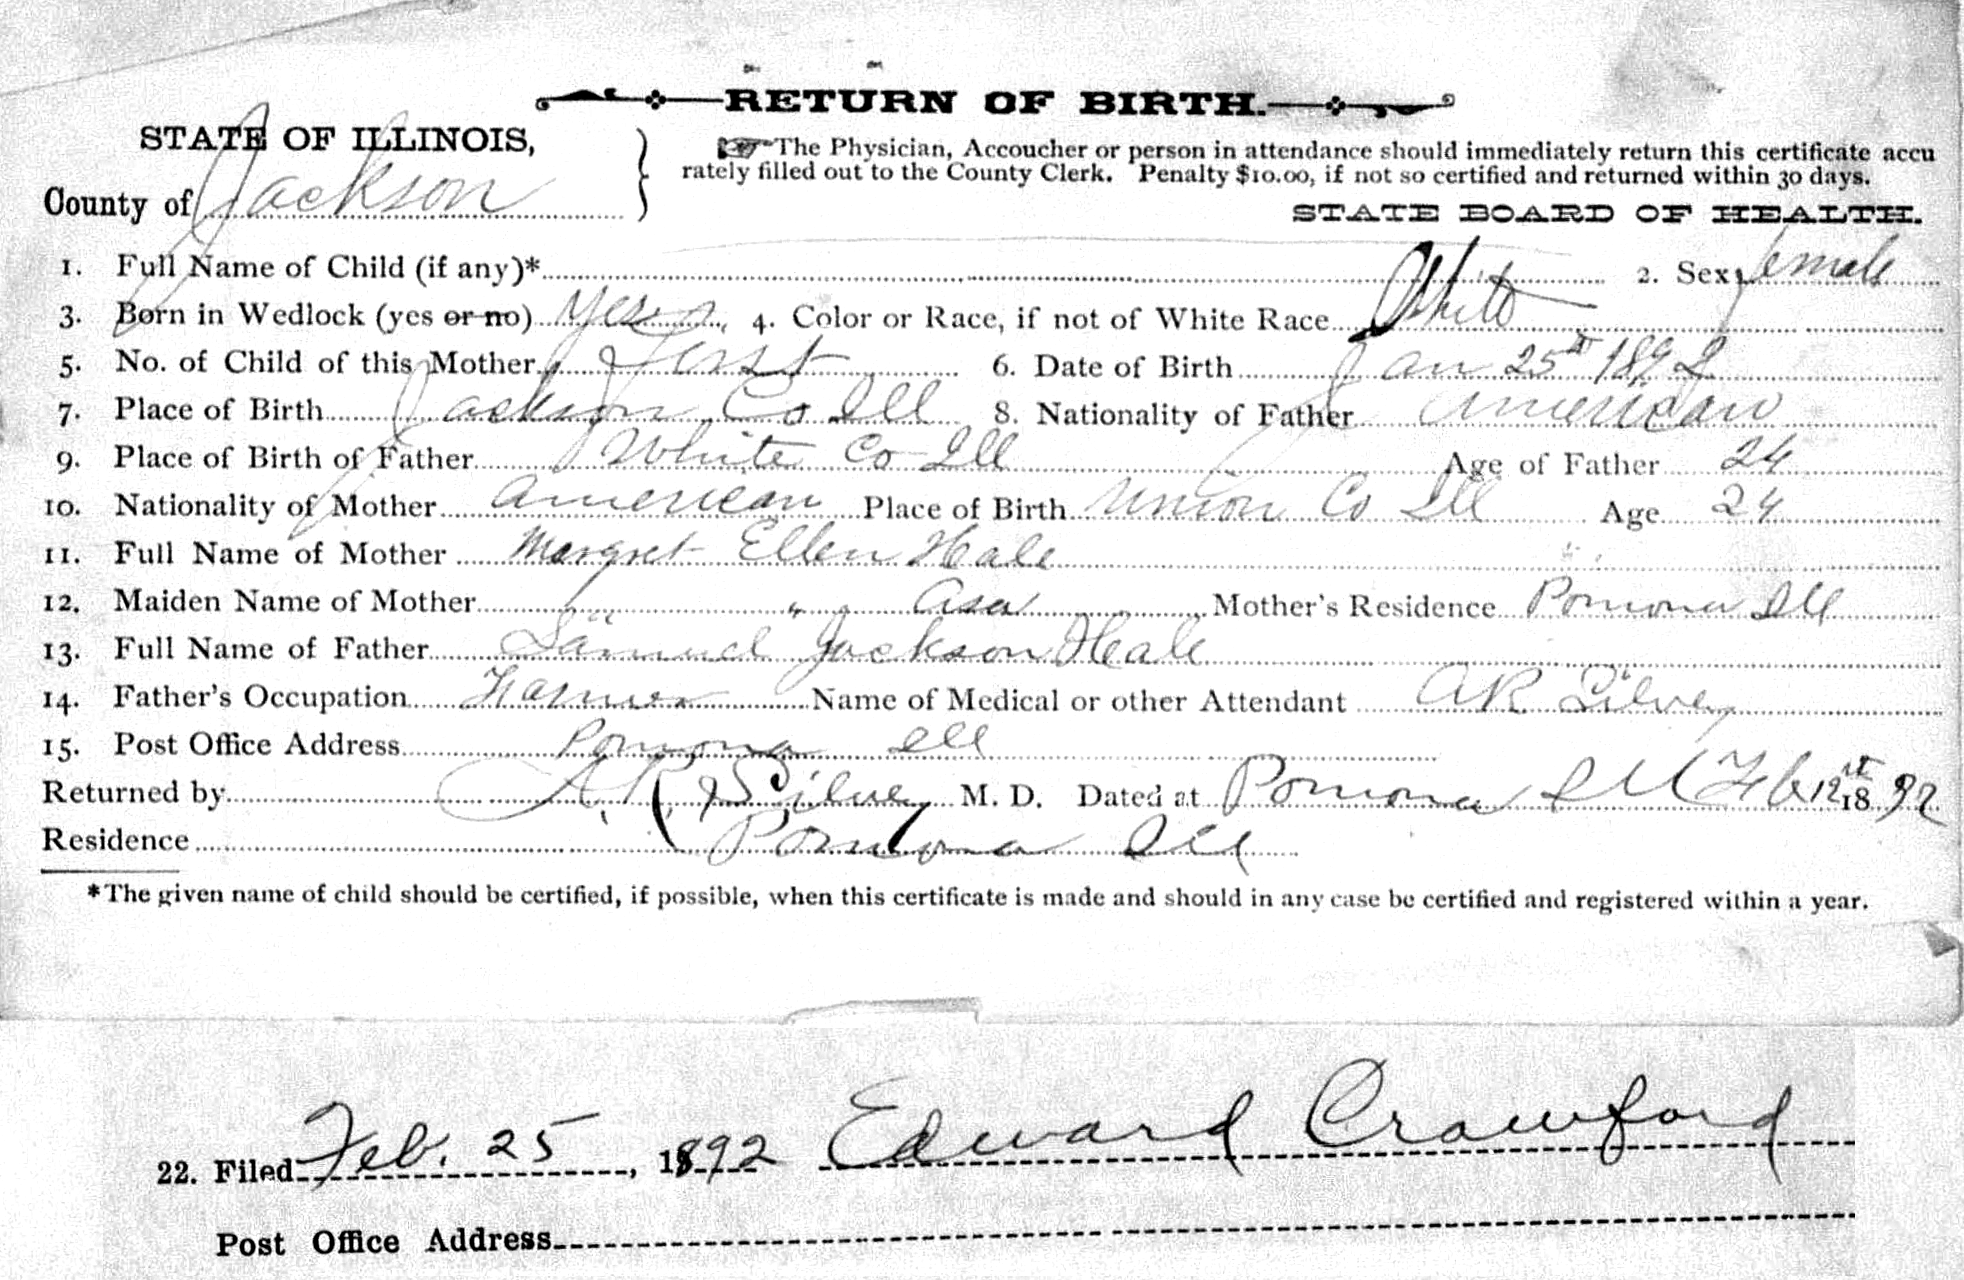 RETURN OF BIRTH.
STATE OF ILLINOIS,
County of Jackson
☞The Physician, Accoucher or person in attendance should immediately return this certificate accu
rately filled out to the County Clerk. Penalty $10.00, if not so certified and returned within 30 days.
STATE BOARD OF HEALTH.
1. Full Name of Child (if any)* 2. Sex female
3. Born in Wedlock (yes or no) Yes 4. Color or Race, if not of White Race White
5. No. of Child of this Mother First 6. Date of Birth Jan 25th 1892
7. Place of Birth Jackson Co Ill 8. Nationality of Father American
9. Place of Birth of Father White Co Ill Age of Father 24
10. Nationality of Mother American Place of Birth Union Co Ill Age 24
11. Full Name of Mother Margret Ellen Hale
12. Maiden Name of Mother " " Asa Mother's Residence Pomona Ill
13. Full Name of Father Samuel Jackson Hale
14. Father's Occupation Farmer Name of Medical or other Attendant A R Silvey
15. Post Office Address Pomona Ill
Returned by A. R. Silvey M. D. Dated at Pomona Ill Feb 12 1892
Residence Pomona Ill
*The given name of child should be certified, if possible, when this certificate is made and should in any case be certified and registered within a year.
22. Filed Feb. 25, 1892 Edward Crawford
Post Office Address